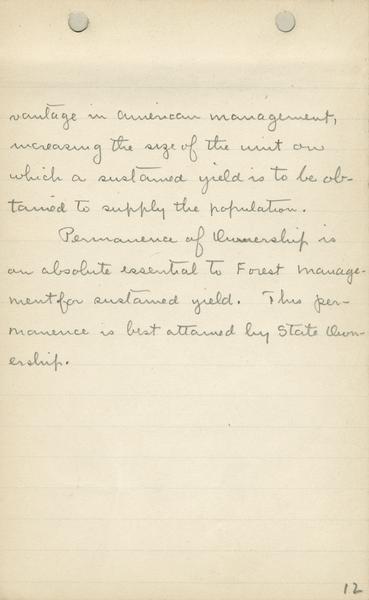 vantage in American management,
increasing the size of the unit on
which a sustained yield is to be ob-
tained to supply the population.
Permanence of Ownership is
an absolute essential to Forest Manage-
ment for sustained yield. This per-
manence is best attained by State Own-
ership.
12